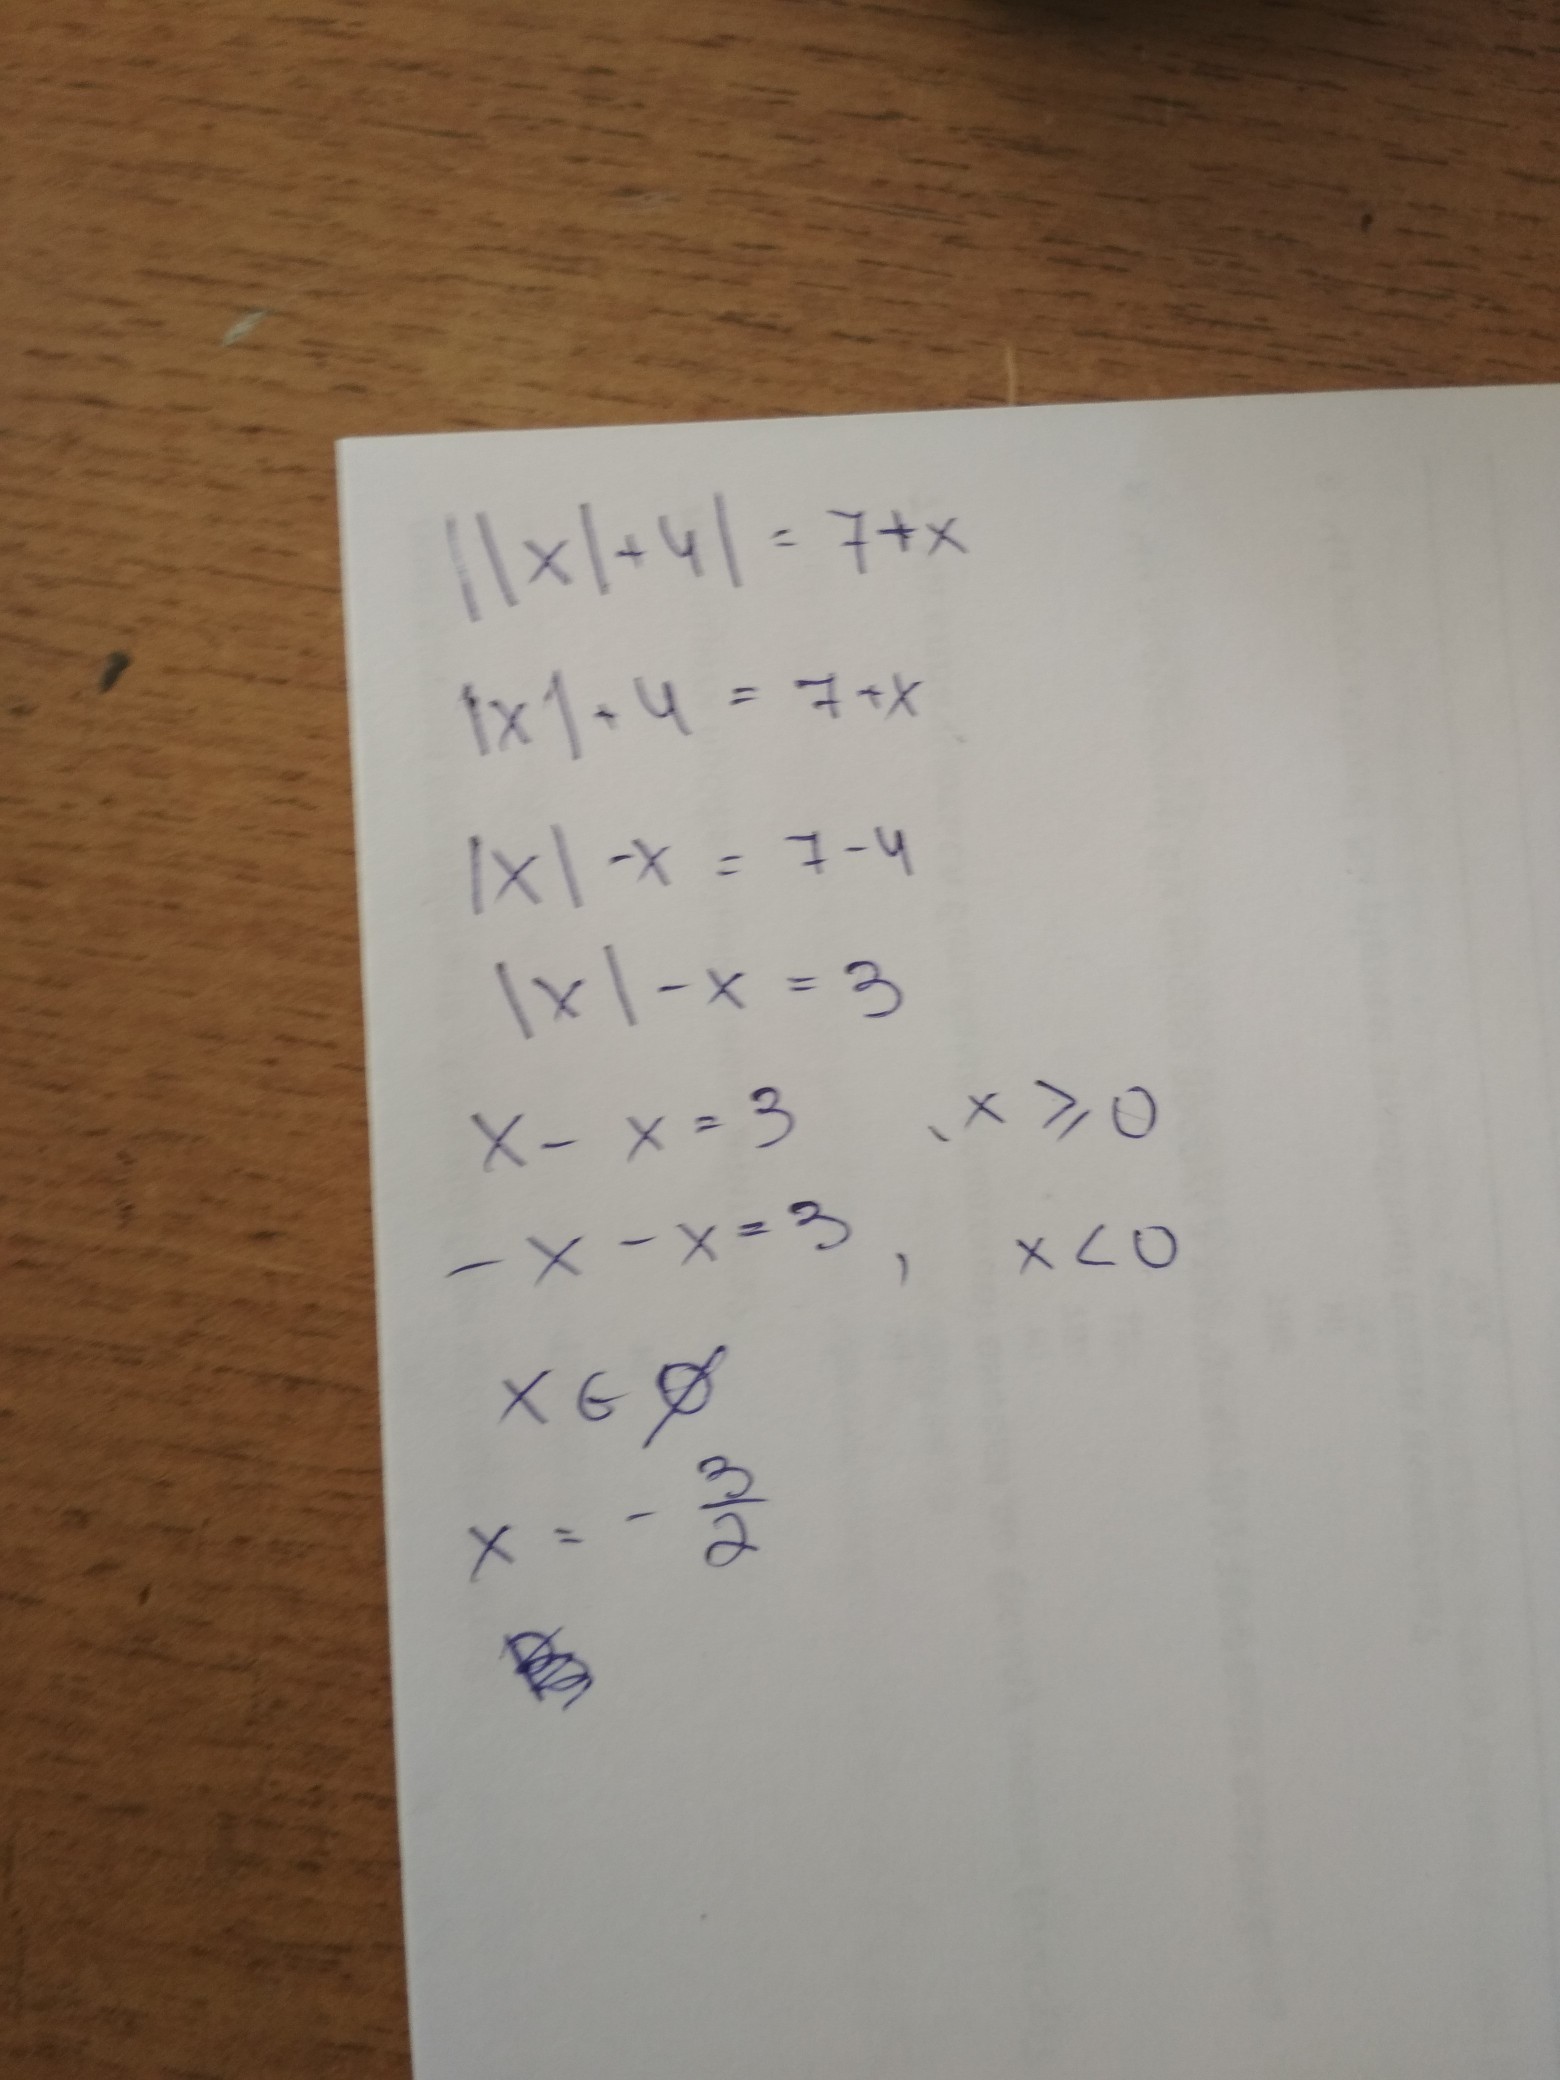 ||x|+4| = 7+x
|x|+4 = 7+x
|x| -x = 7-4
|x| - x = 3
x - x = 3 , x ⩾ 0
- x - x = 3 , x < 0
x ∈ ∅
x = - 3/2